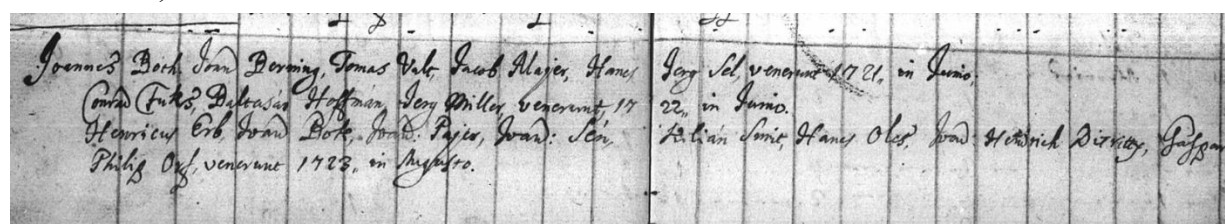 Joannes Both, Joan Berning, Tomas Valt, Jacob Majer, Hanes Jerg Sel, venerunt 1721, in Junio,
Conrad Fuks, Baltasar Hoffman, Jerg Miller, venerunt, 1722, in Junio.
Henricus Erb, Joan Bote, Joan: Pajer, Joan: Sen, Kilian Smit, Hanes Oles, Joan Heinrich Ditrich, Gaspar
Philip venerunt 1723, in Augusto.